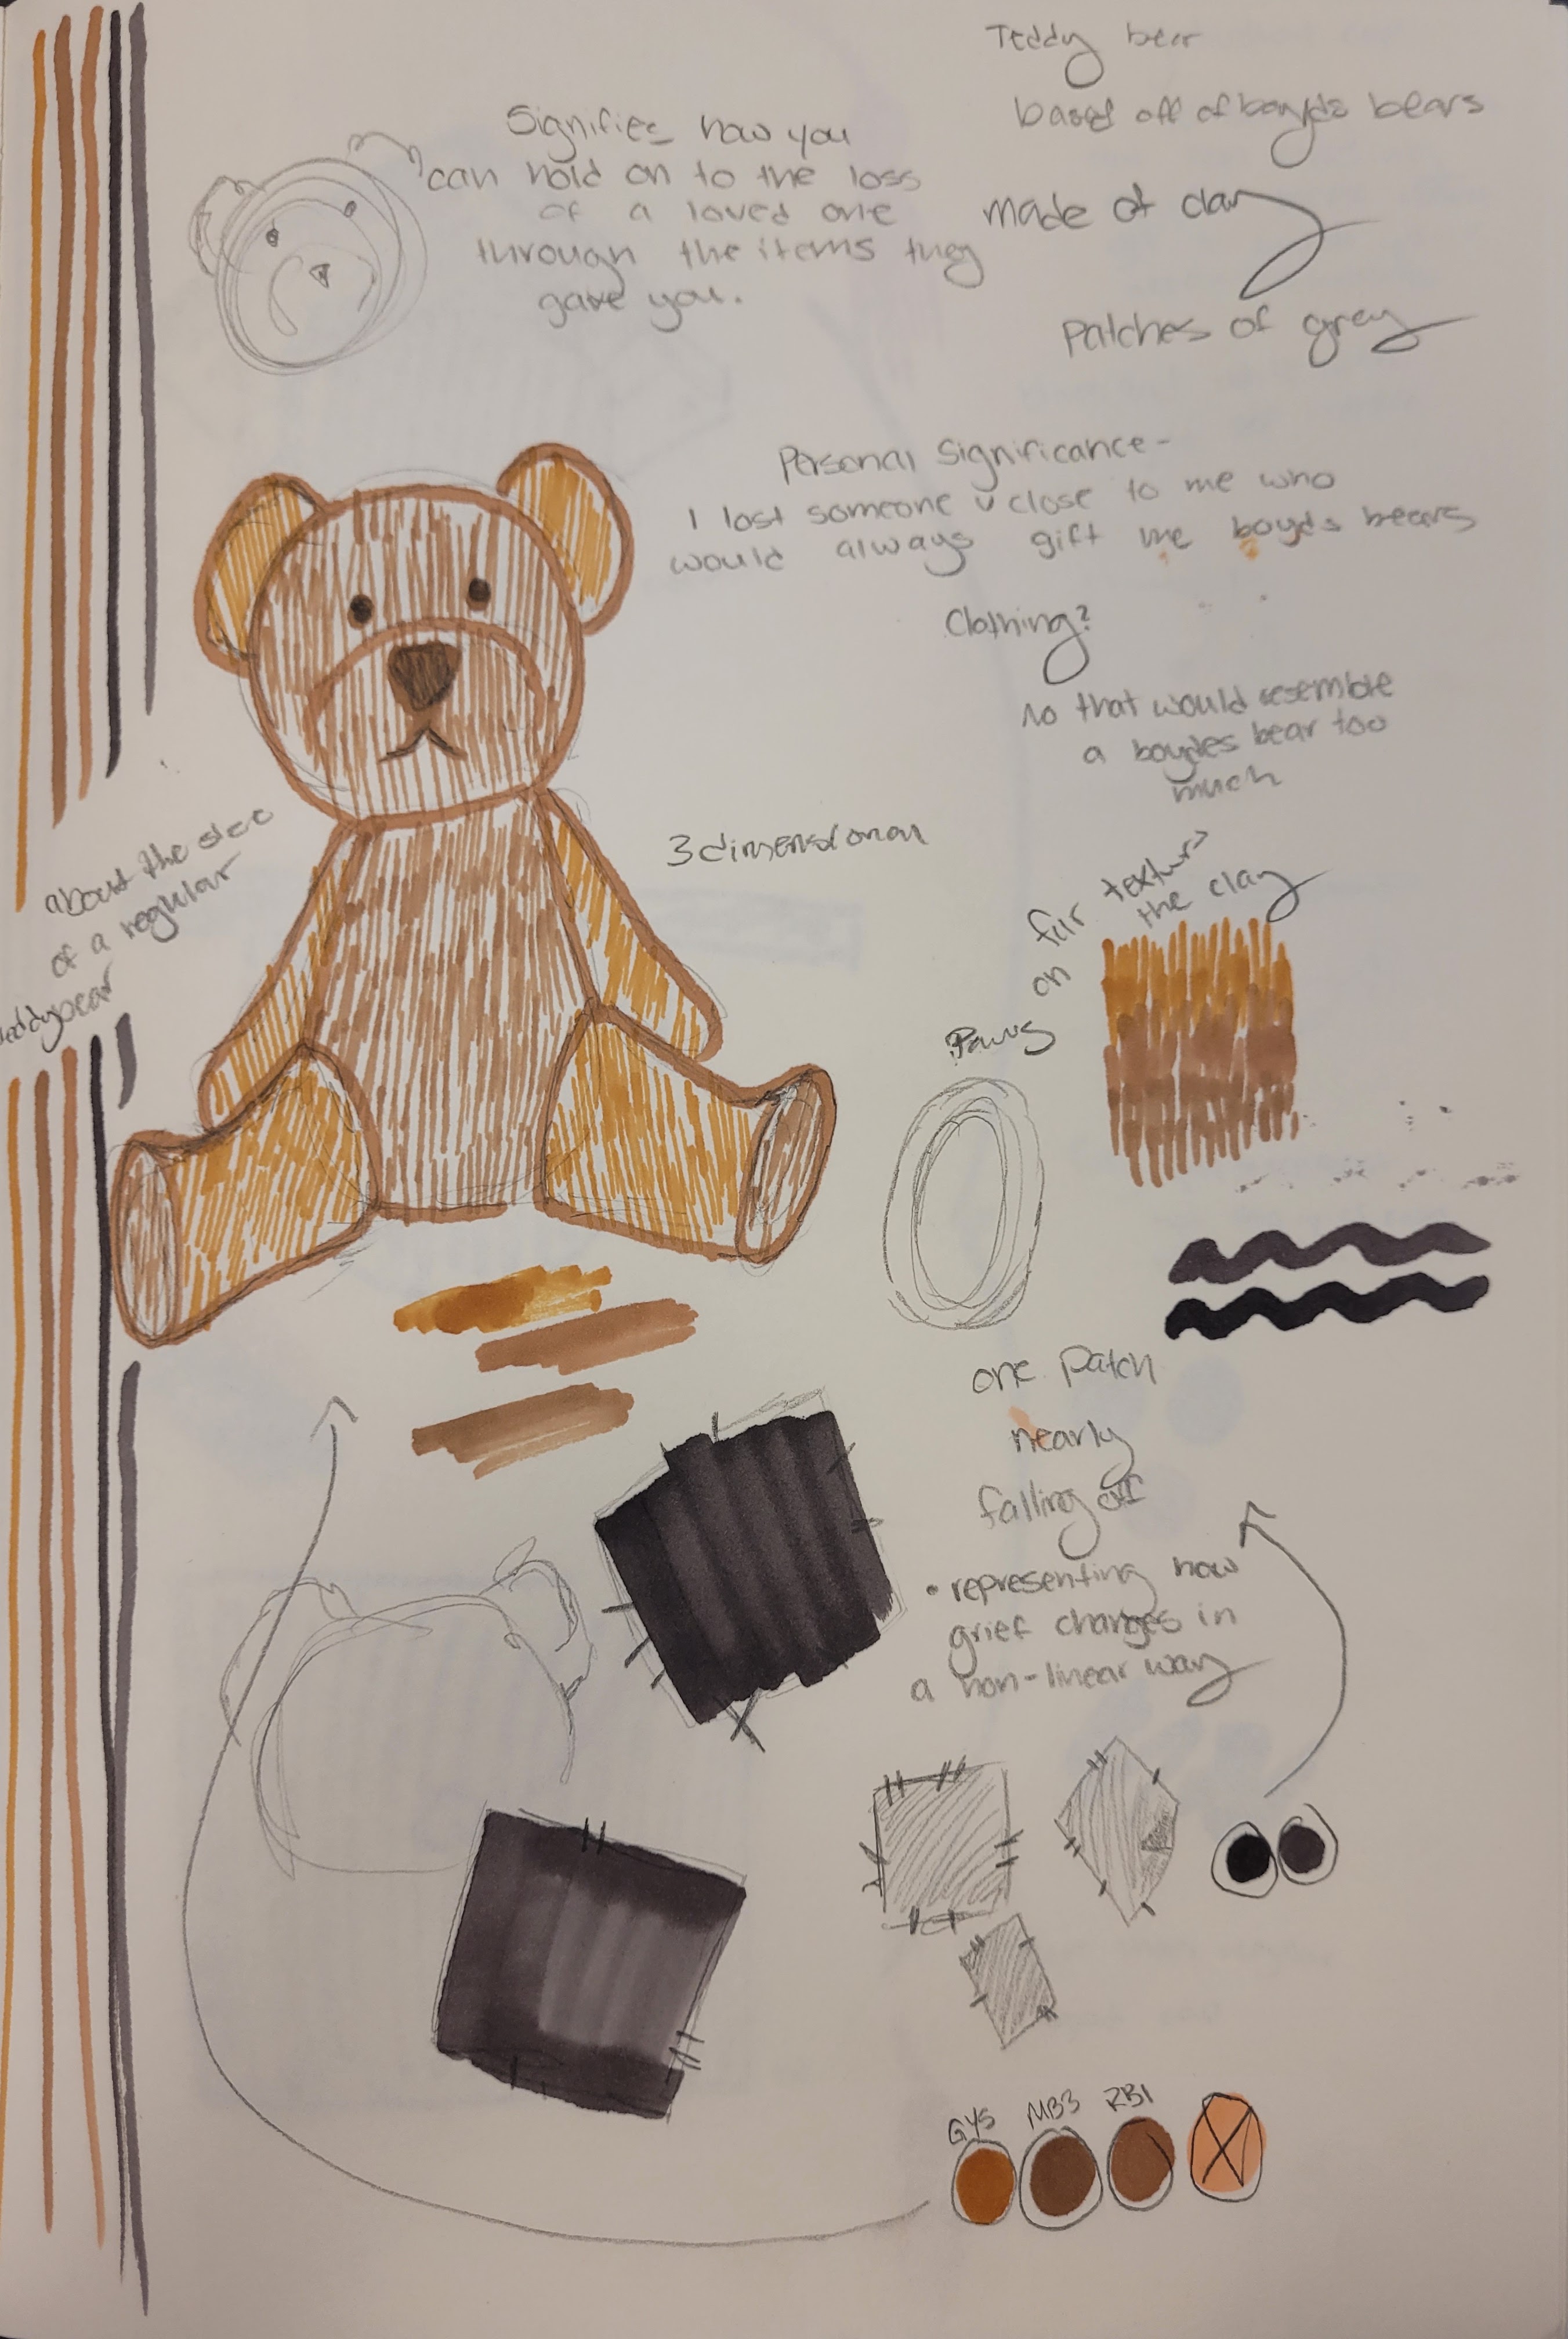 Teddy bear
based off of boyds bears
made of clay
Patches of grey
Signifies how you
can hold on to the loss
of a loved one
through the items they
gave you.
Personal Significance-
I lost someone v close to me who
would always gift me boyds bears
Clothing?
No that would resemble
a boydes bear too
much
about the size
of a regular
teddybear
3 dimensional
fur texture
on the clay
Paws
one patch
nearly
falling off
• representing how
grief changes in
a non-linear way
GY5 MB3 RB1